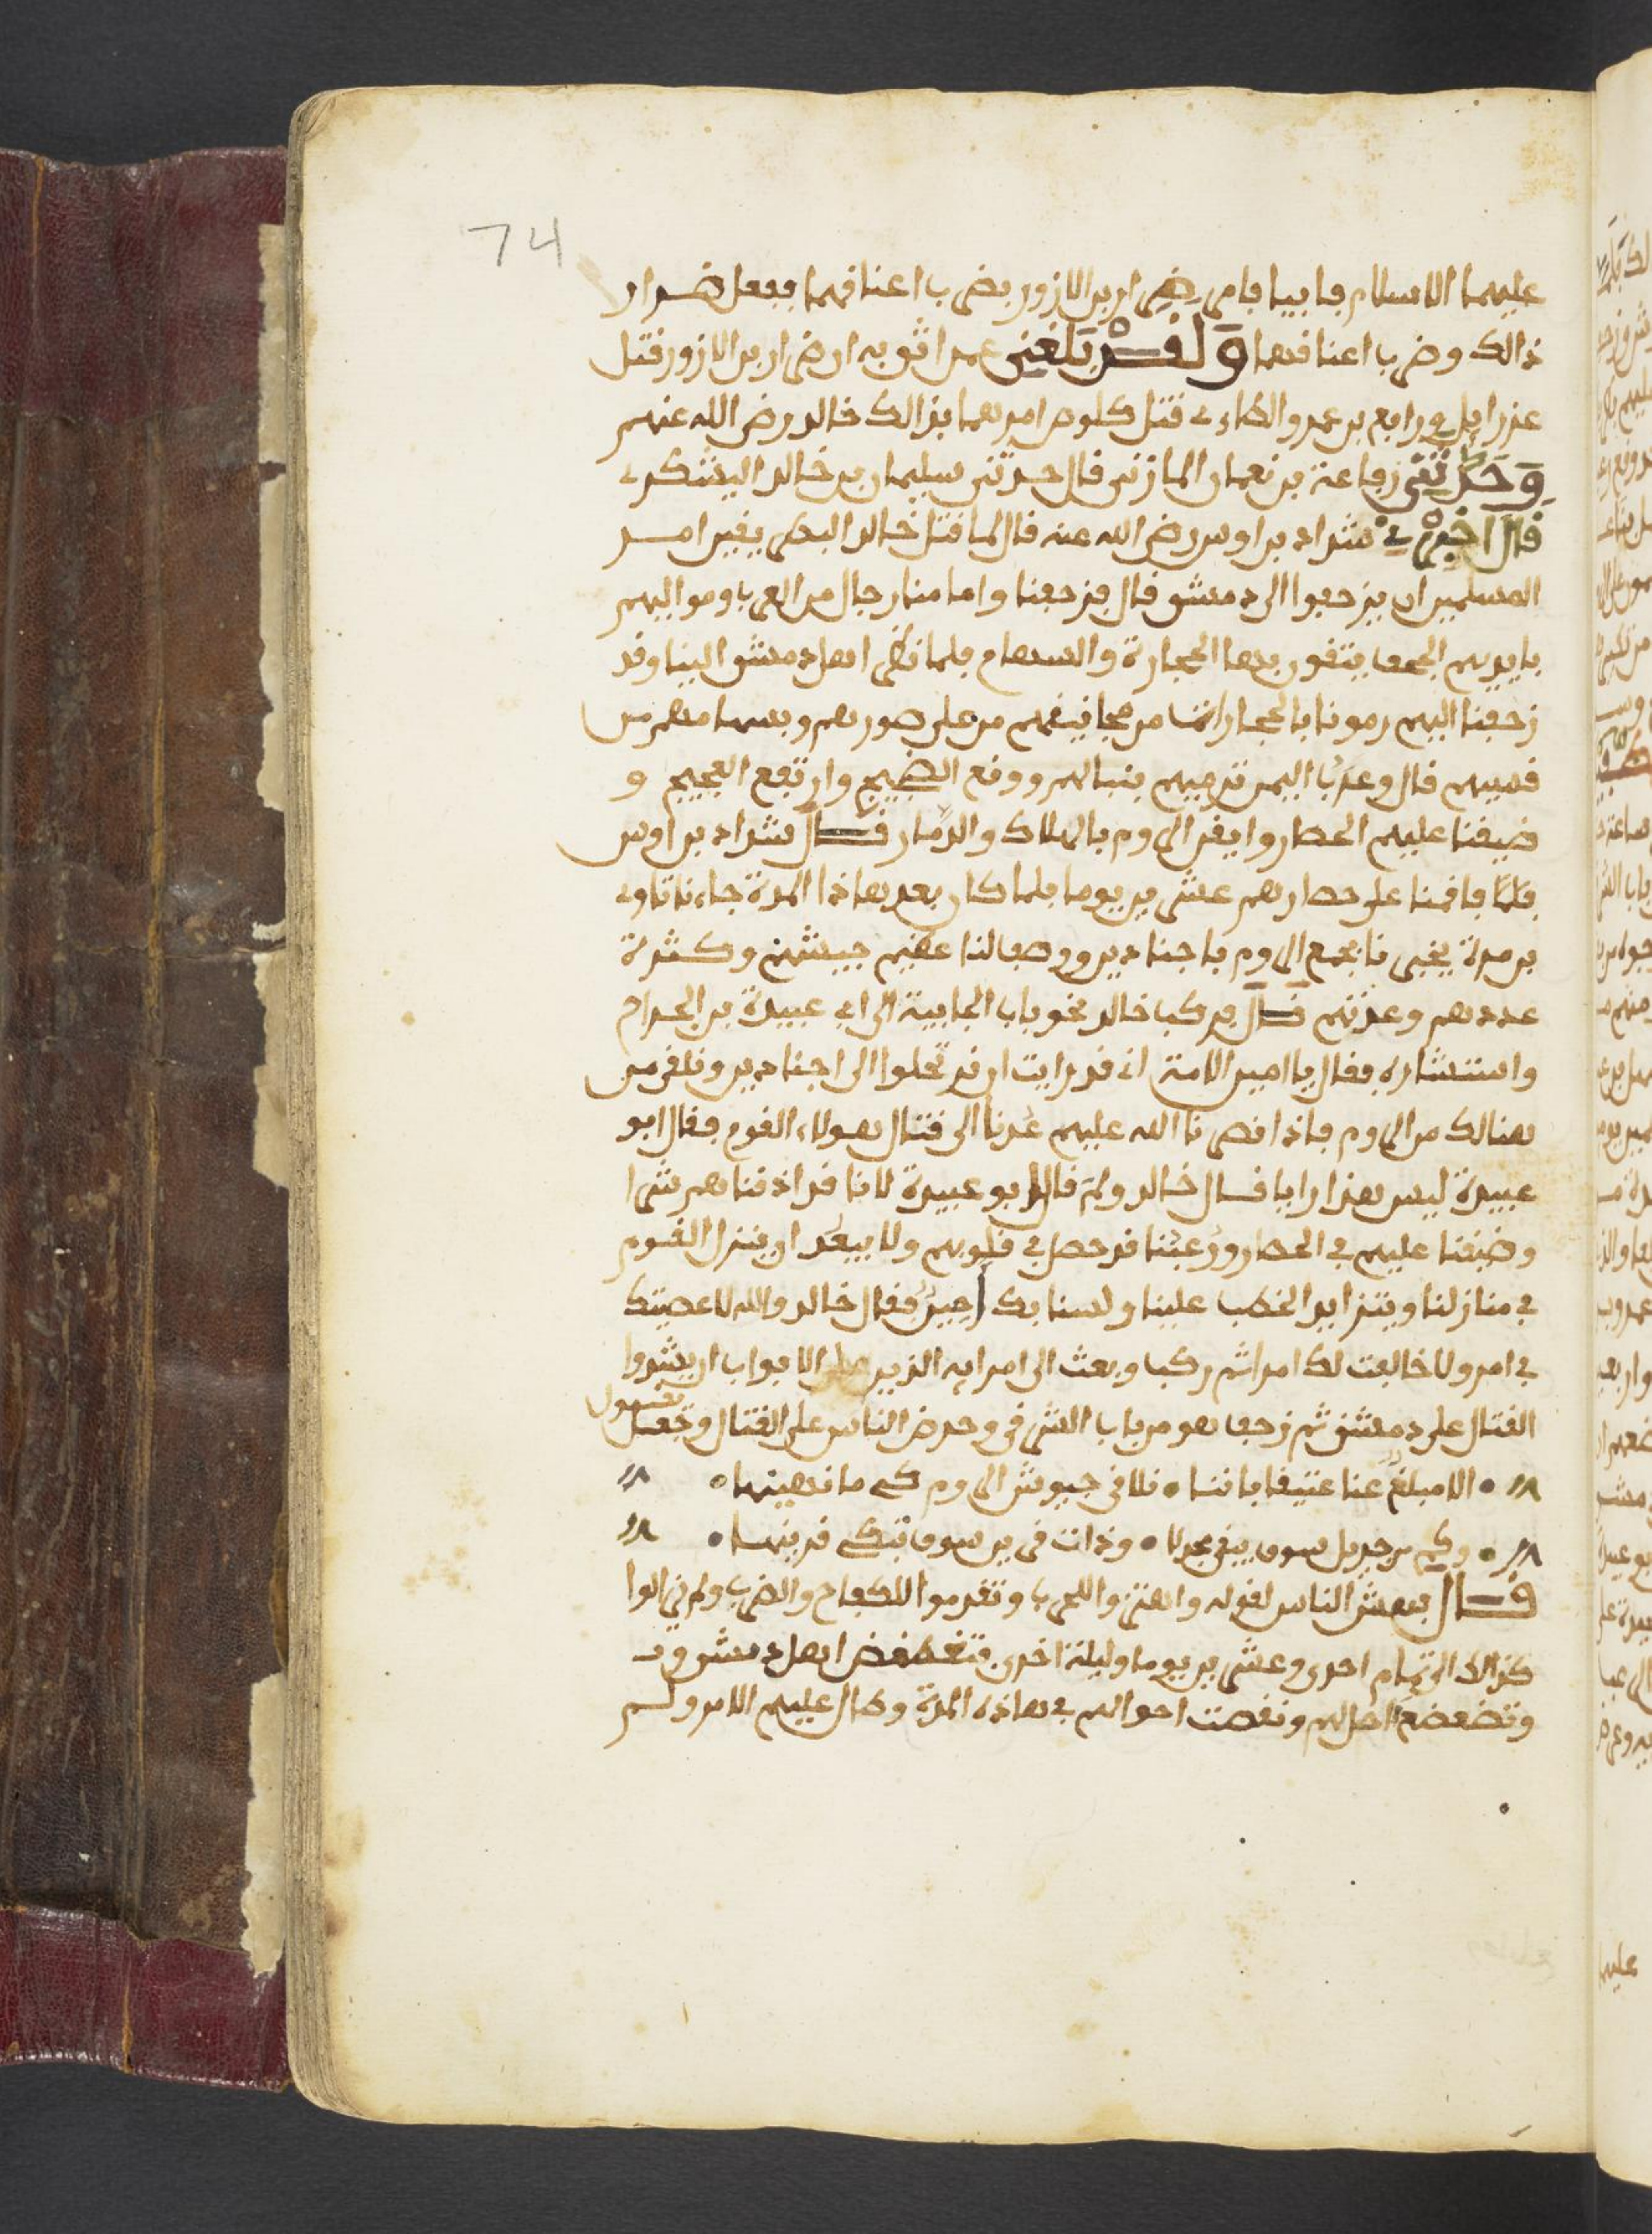 74
عليهما الاسلام فابيا فامر ضرار بن الازور بضرب اعناقهما ففعل ضرار
ذالك وضرب اعناقهما وَلَقَدْ بَلَغَنِي عمن اثق به ان ضرار بن الازور قتل
عزرائيل ورابع بن عمرو الطاءي قتل كلوص امرهما بذالك خالد رضي الله عنهم
وَحَدَّثَنِي رفاعة بن نعمان المازني قال حدثني سليمان بن خالد اليشكري
قال اخبرني شداد بن اوس رضي الله عنه قال لما قتل خالد البطريقين امر
المسلمين ان يزحفوا الى دمشق قال فزحفنا وامامنا رجال من العرب ومواليهم
بايديهم الحجف يتقون بها الحجارة والسهام فلما نظر اهل دمشق الينا وقد
زحفنا اليهم رمونا بالحجارات من مجانيقهم من على صورهم وبسهامهم من
قسيهم قال وعرب اليمن ترميهم بنبالهم ووقع الضجيج وارتفع العجيج و
ضيقنا عليهم الحصار وايقن الروم بالهلاك والدمار قال شداد بن اوس
فلما فاقمنا على حصارهم عشرين يوما فلما كان بعد هاذا المدة جاءنا ناوي
بن مرة يخبرنا بجمع الروم باجنادين ووصف لنا عظيم جيشهم وكثرة
عددهم وعدتهم قال فركب خالد نحو باب الجابية الى ابي عبيدة بن الجراح
واستشاره فقال يا امين الامة اني قد رايت ان نرتحلوا الى اجنادين ونلقى من
هنالك من الروم فاذا نصرنا الله عليهم عُدنا الى قتال هولاء القوم فقال ابو
عبيدة ليس هذا رايا قال خالد ولم قال ابو عبيدة لانا قد اذقناهم شرا
وضيقنا عليهم في الحصار ورُعبُنا قد حصل في قلوبهم ولا يبعد ان ينزل القوم
في منازلنا ويتزايد الخطب علينا ولسنا بك فقال خالد والله لا عصيتك
في امر ولا خالفت لك امرا ثم ركب وبعث الى امرايه الذين على الابواب ان يشدوا
القتال على دمشق ثم زحف هو من باب الشرقي وحرض الناس على القتال وجعل يقول
• الا مبلغ عنا عتيقا باننا • نلاقي جيوش الروم •
• وكم من جديل سوف يبقى مجدلا • وذات قرين سوف تبكي قرينها •
قال فبعش الناس لقوله واهتزوا للحرب وتقدموا للكفاح والضرب ولم يزالوا
كذالك الى تمام احدى وعشرين يوما وليلة اخرى اهل دمشق وقد
وتضعضع حالهم ونقصت احوالهم في هاذه المدة وطال عليهم الامر ولم